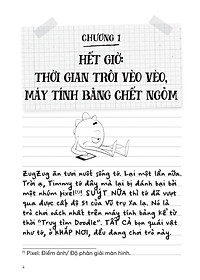 CHƯƠNG 1
HẾT GIỜ:
THỜI GIAN TRÔI VÈO VÈO,
MÁY TÍNH BẢNG CHẾT NGÓM
ZugZug ăn tươi nuốt sống tớ. Lại một lần nữa.
Trời ạ, Timmy tớ đây mà lại bị đánh bại bởi
một nhúm pixel⁽¹⁾! SUÝT NỮA thì tớ đã vượt
qua được cấp độ 51 của Vũ trụ Xa lạ. Nó là
trò chơi sách nhất trên máy tính bảng kể từ
thời "Truy tìm Doodle". TẤT CẢ bọn quái vật
như tớ, ở KHẮP NƠI, đều đang chơi trò này.
⁽¹⁾ Pixel: Điểm ảnh/ Độ phân giải màn hình.